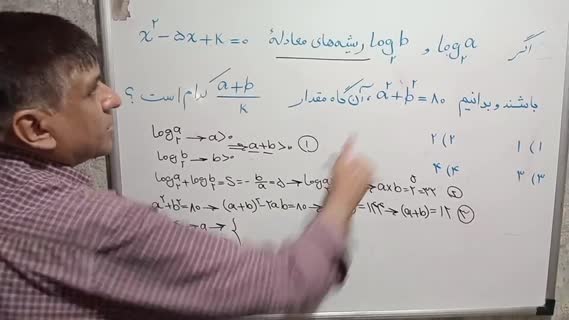 اگر log₂a و log₂b ریشه‌های معادلهٔ x² - ۵x + k = ۰
باشند و بدانیم a² + b² = ۸۰ ، آن گاه مقدار (a+b)/k کدام است ؟
۱) ۱ ۲) ۲
۳) ۳ ۴) ۴
log₂a → a>۰
⟹ a+b>۰ ①
log₂b → b>۰
log₂a + log₂b = S = -b/a = ۵ → log → a×b = ۲⁵ = ۳۲ ②
a² + b² = ۸۰ → (a+b)² - ۲ab = ۸۰ → = ۱۴۴ → (a+b) = ۱۲ ③
→ a → {